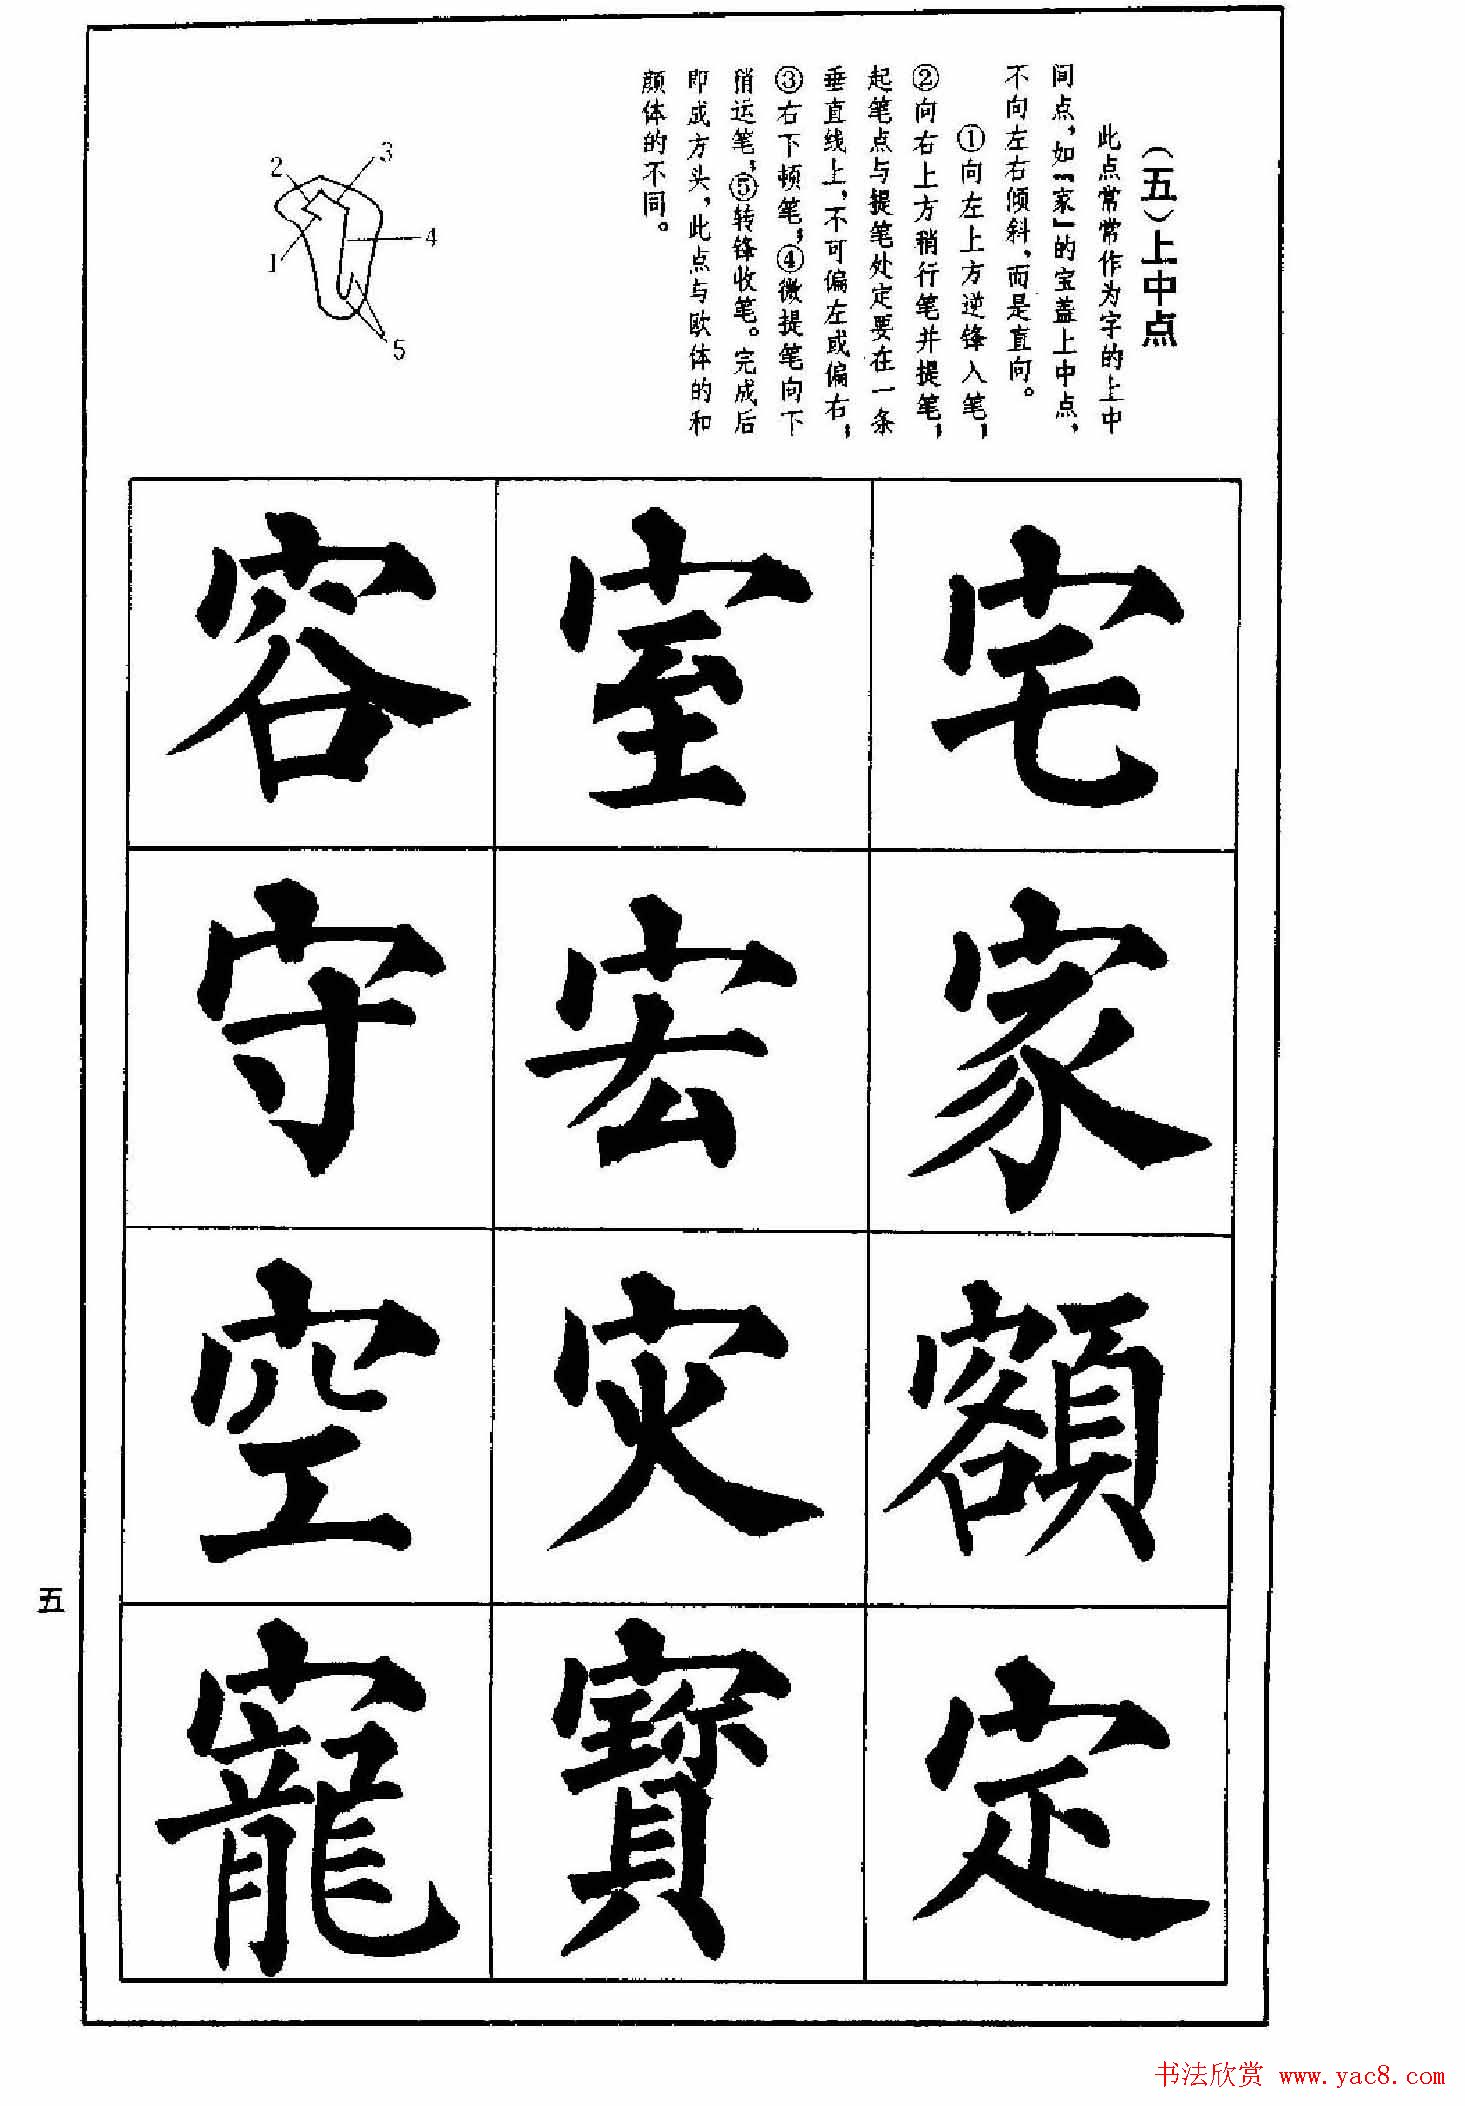 （五）上中点
此点常常作为字的上中
间点，如『家』的宝盖上中点，
不向左右倾斜，而是直向。
①向左上方逆锋入笔；
②向右上方稍行笔并提笔；
起笔点与提笔处定要在一条
垂直线上，不可偏左或偏右；
③右下顿笔；④微提笔向下
稍运笔；⑤转锋收笔。完成后
即成方头，此点与欧体的和
颜体的不同。
1
2
3
4
5
宅
家
額
定
室
宏
灾
寶
容
守
空
寵
五
书法欣赏 www.yac8.com